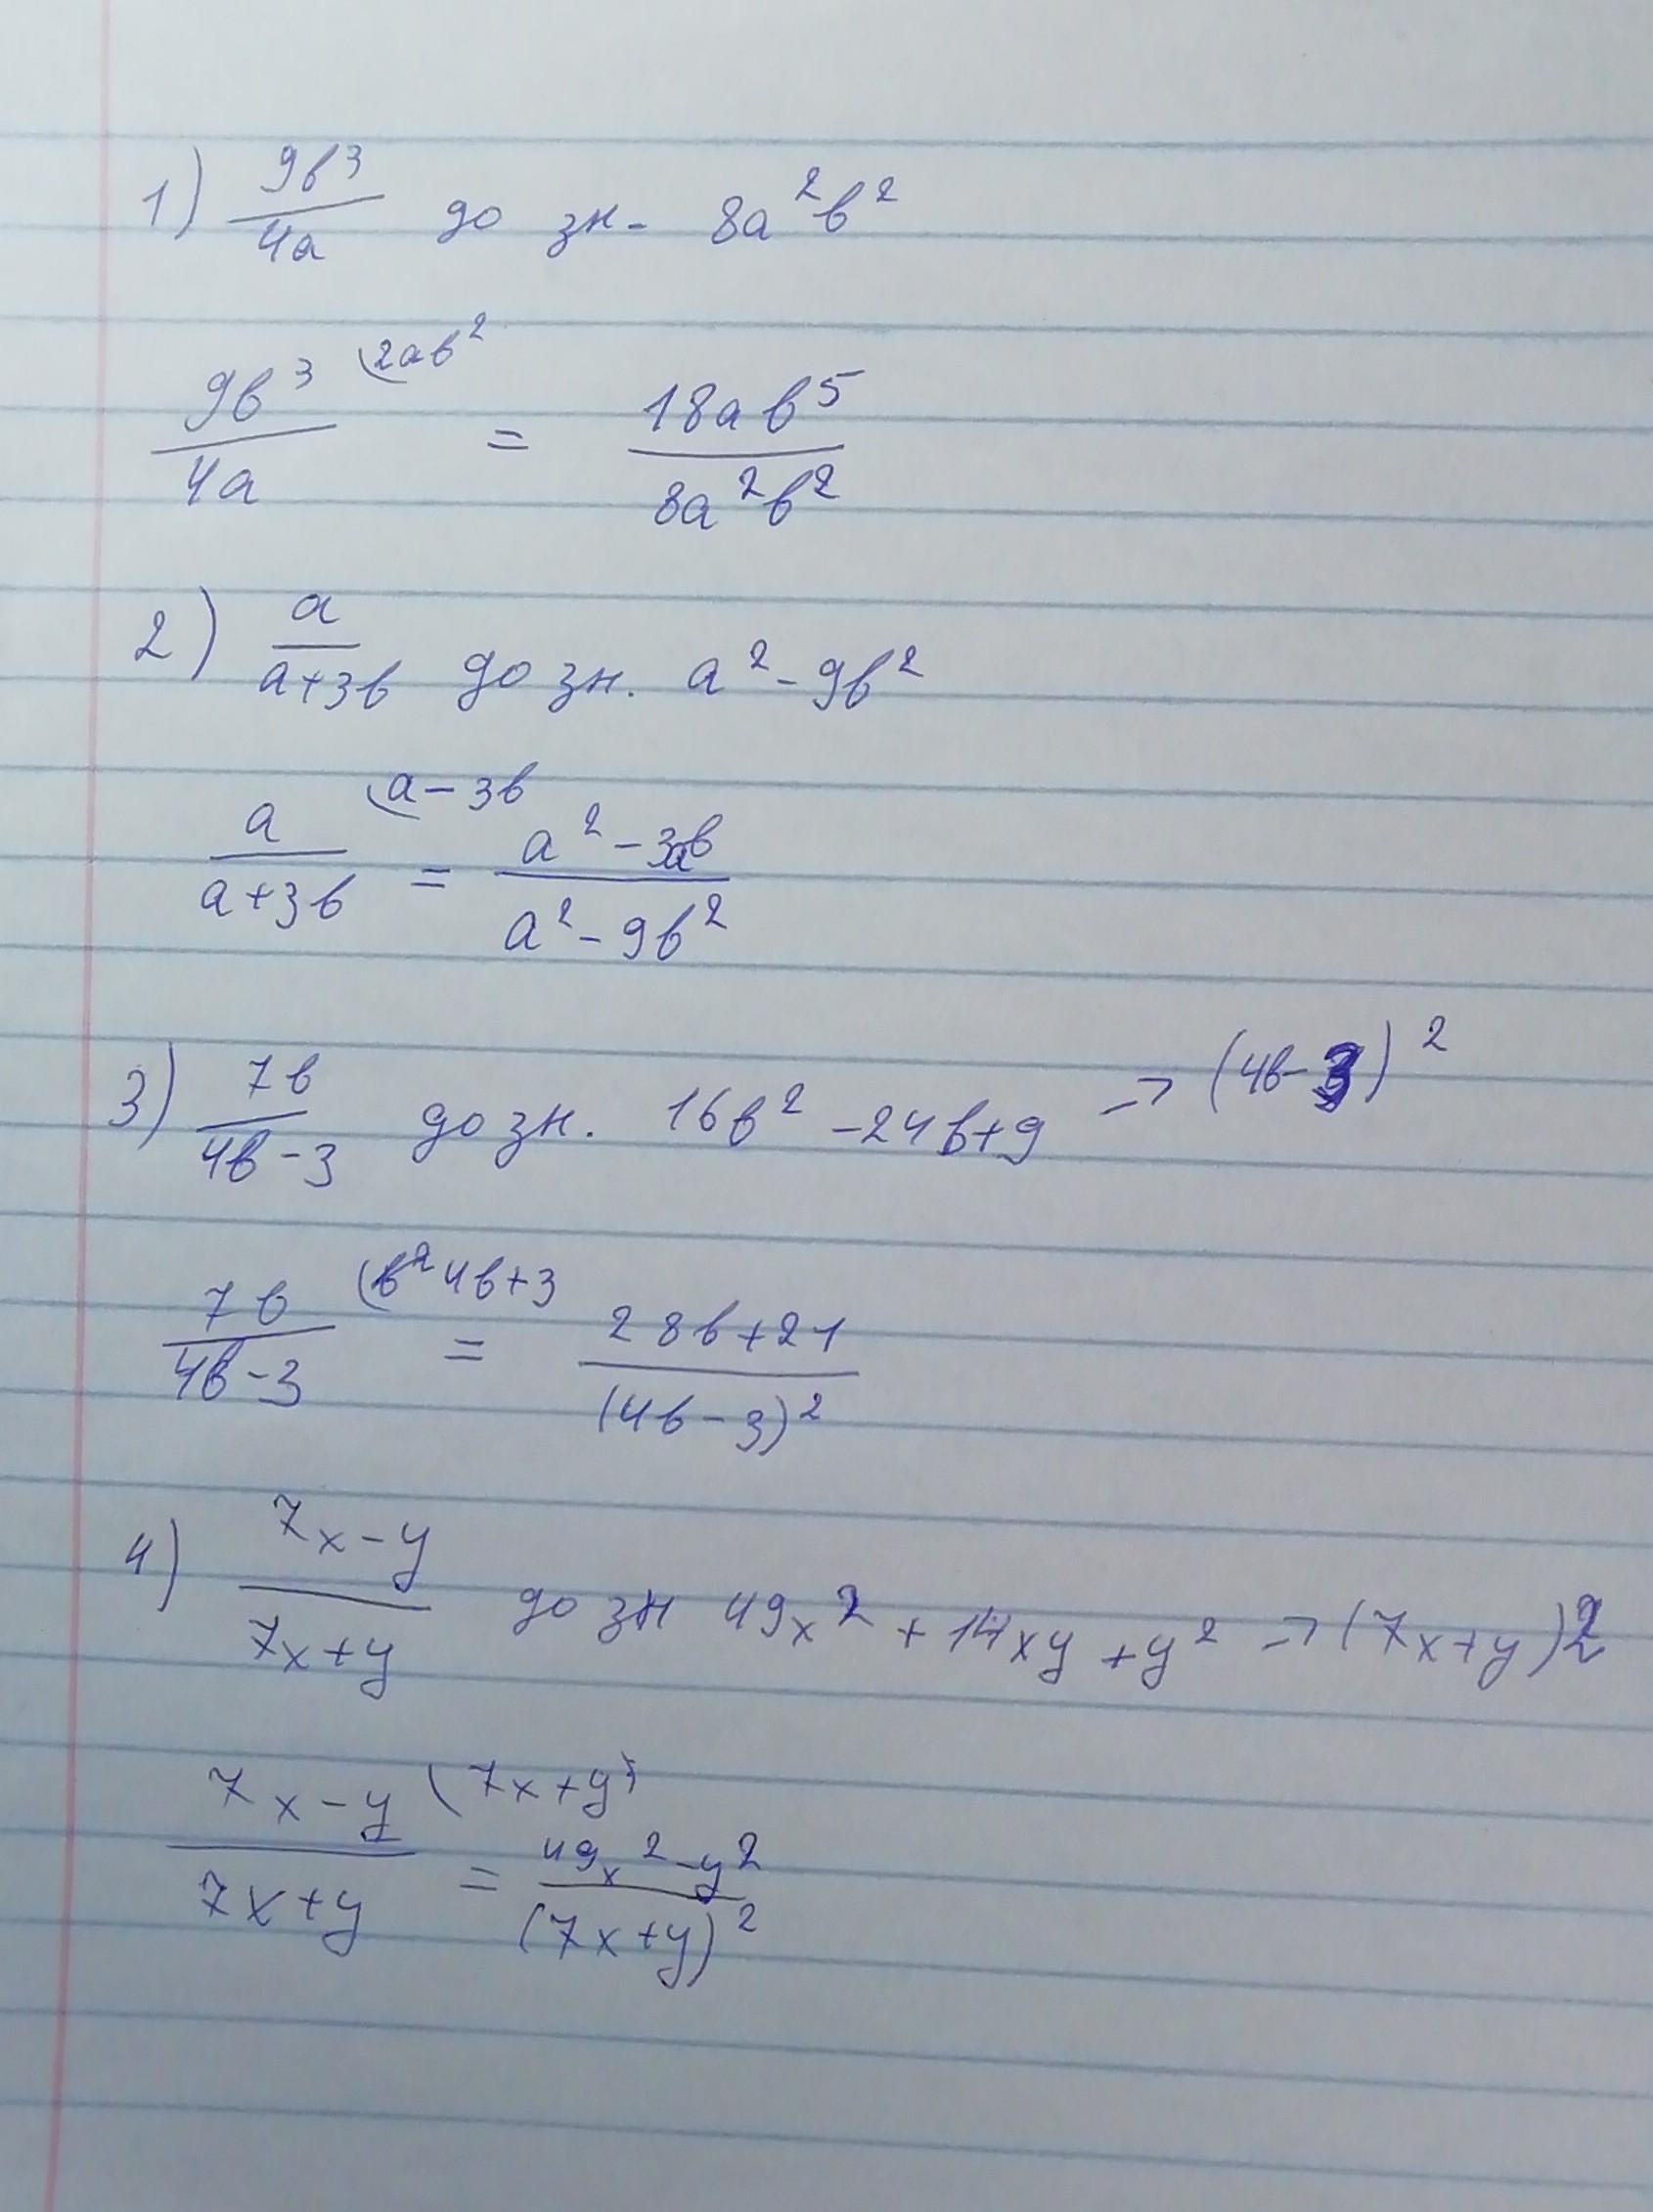 1) 9b³/4a до зн- 8a²b²
9b³/4a (2ab² = 18ab⁵/8a²b²
2) a/a+3b до зн. a²-9b²
a/a+3b (a-3b = a²-3ab/a²-9b²
3) 7b/4b-3 до зн. 16b²-24b+9 → (4b-3)²
7b/4b-3 (4b+3 = 28b+21/(4b-3)²
4) 7x-y/7x+y до зн 49x²+14xy+y² → (7x+y)2
7x-y/7x+y (7x+y) = 49x²-y²/(7x+y)²